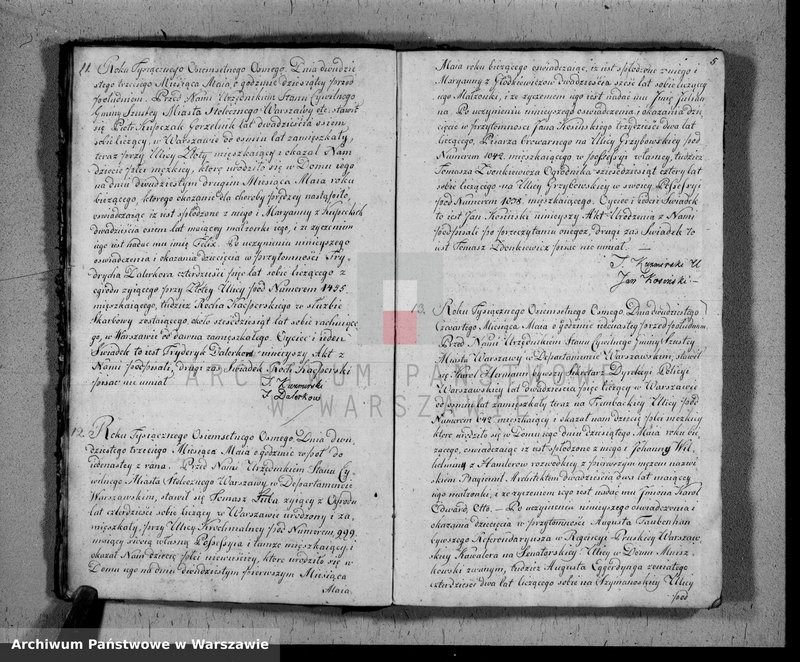 11. Roku Tysiącznego Osiemsetnego Osmego, Dnia dwudzie
stego trzeciego Miesiąca Maia o godzinie dziesiątey przed
południem. Przed Nami Urzędnikiem Stanu Cywilnego
Gminy Miasta Stołecznego Warszawy etc. stawił
się Piotr Gorzelnik lat dwadzieścia osiem
sobie liczący, w Warszawie od osmiu lat zamieszkały
teraz przy Ulicy Złotey mieszkaiący i okazał Nam
dziecie płci męzkiey, które urodziło się w Domu iego
na dniu dwudziestym drugim Miesiąca Maia roku
bieżącego, którego okazaniu dla choroby prędzey nastąpiło,
oswiadczaiąc iż iest spłodzone z niego i Maryanny z
dwadzieścia osiem lat maiącey małżonki iego, i że życzeniem
iego iest nadać mu imię Felix. Po uczynieniu ninieyszego
oswiadczenia i okazania dziecięcia w przytomności Fry
drycha Daterkora czterdzieści pięć lat sobie liczącego z
ogrodu żyiącego przy Złotey Ulicy pod Numerem 1495.
mieszkaiącego, tudzież Rocha Kacperskiego w służbie
Skarbowey zostaiącego, około sześćdziesiąt lat sobie rachuiące
go, w Warszawie od dawna zamieszkałego. Oyciec i ieden
Świadek to iest Fryderyk Daterkow ninieyszy Akt z
Nami podpisali, drugi zaś Świadek Roch Kacperski
pisać nie umiał
J. Kuzmirski
F. Daterkow
12. Roku Tysiącznego Osiemsetnego Osmego, Dnia dwu
dziestego trzeciego Miesiąca Maia o godzinie w pół do
iedenastey z rana. Przed Nami Urzędnikiem Stanu Cy
wilnego Miasta Stołecznego Warszawy w Departamencie
Warszawskim, stawił się Tomasz żyiący z Ogrodu
lat czterdzieści sobie liczący w Warszawie urodzony i za
mieszkały, przy Ulicy Krochmalney pod Numerem 999.
maiący swoią własną Possessyą i tamże mieszkaiący, i
okazał Nam dziecię płci niewieściey, które urodziło się w
Domu iego na dniu dwudziestym pierwszym Miesiąca
Maia
5
Maia roku bieżącego oswiadczaiąc, iż iest spłodzone z niego i
Maryanny z Głodkiewiczow dwadzieścia sześć lat sobie liczącey
iego Małżonki, i że życzeniem iego iest nadać mu Imię Julian
na. Po uczynieniu ninieyszego oswiadczenia i okazania dzie
cięcia w przytomności Jana Kosińskiego trzydzieści dwa lat
liczącego, Pisarza browarnego na Ulicy Grzybowskiey pod
Numerem 1042. mieszkaiącego w Possessyi własney, tudzież
Tomasza Zdonkiewicza Ogrodnika, sześćdziesiąt cztery lat
sobie liczącego na Ulicy Grzybowskiey w swoiey Possessyi
pod Numerem 1038. mieszkaiącego. Oyciec i ieden Świadek
to iest Jan Kosinski ninieyszy Akt Urodzenia z Nami
podpisali po przeczytaniu onegoż, drugi zaś Świadek to
iest Tomasz Zdonkiewicz pisać nie umiał. —
J. Kuzmirski U
Jan Kosinski —
13. Roku Tysiącznego Osiemsetnego Osmego, Dnia dwudziestego
Czwartego Miesiąca Maia o godzinie iedenastey przed południem
Przed Nami Urzędnikiem Stanu Cywilnego Gminy
Miasta Warszawy w Departamencie Warszawskim, stawił
się Karol Hermann bywszy Sekretarz Dyrekcyi Policyi
Warszawskiey lat dwadzieścia pięć liczący w Warszawie
od osmiu lat zamieszkały teraz na Tłumackiey Ulicy pod
Numerem mieszkaiący i okazał nam dziecię płci męzkiey
które urodziło się w Domu iego dnia dziesiątego Maia roku bie
żącego, oswiadczaiąc iż iest spłodzone z niego i Johanny Wil
helminy z Hamlerow rozwodki z pierwszym mężem nazwi
skiem Architektem dwadzieścia dwa lat maiącey
iego małżonki, i że życzeniem iego iest nadać mu Imiona Karol
Edward, Otto. — Po uczynieniu ninieyszego oswiadczenia i
okazania dziecięcia w przytomności Augusta Taubenhan
bywszego Referendaryusza w Regencyi Pruskiey Warszaw
skiey Kawalera na Senatorskiey Ulicy w Domu Minsz
kowski zwanym, tudzież Augusta Eggerdynga żonatego
czterdzieści dwa lat liczącego sobie na Szymanoskiey Ulicy
pod
ARCHIWUM PAŃSTWOWE
W WARSZAWIE
Archiwum Państwowe w Warszawie